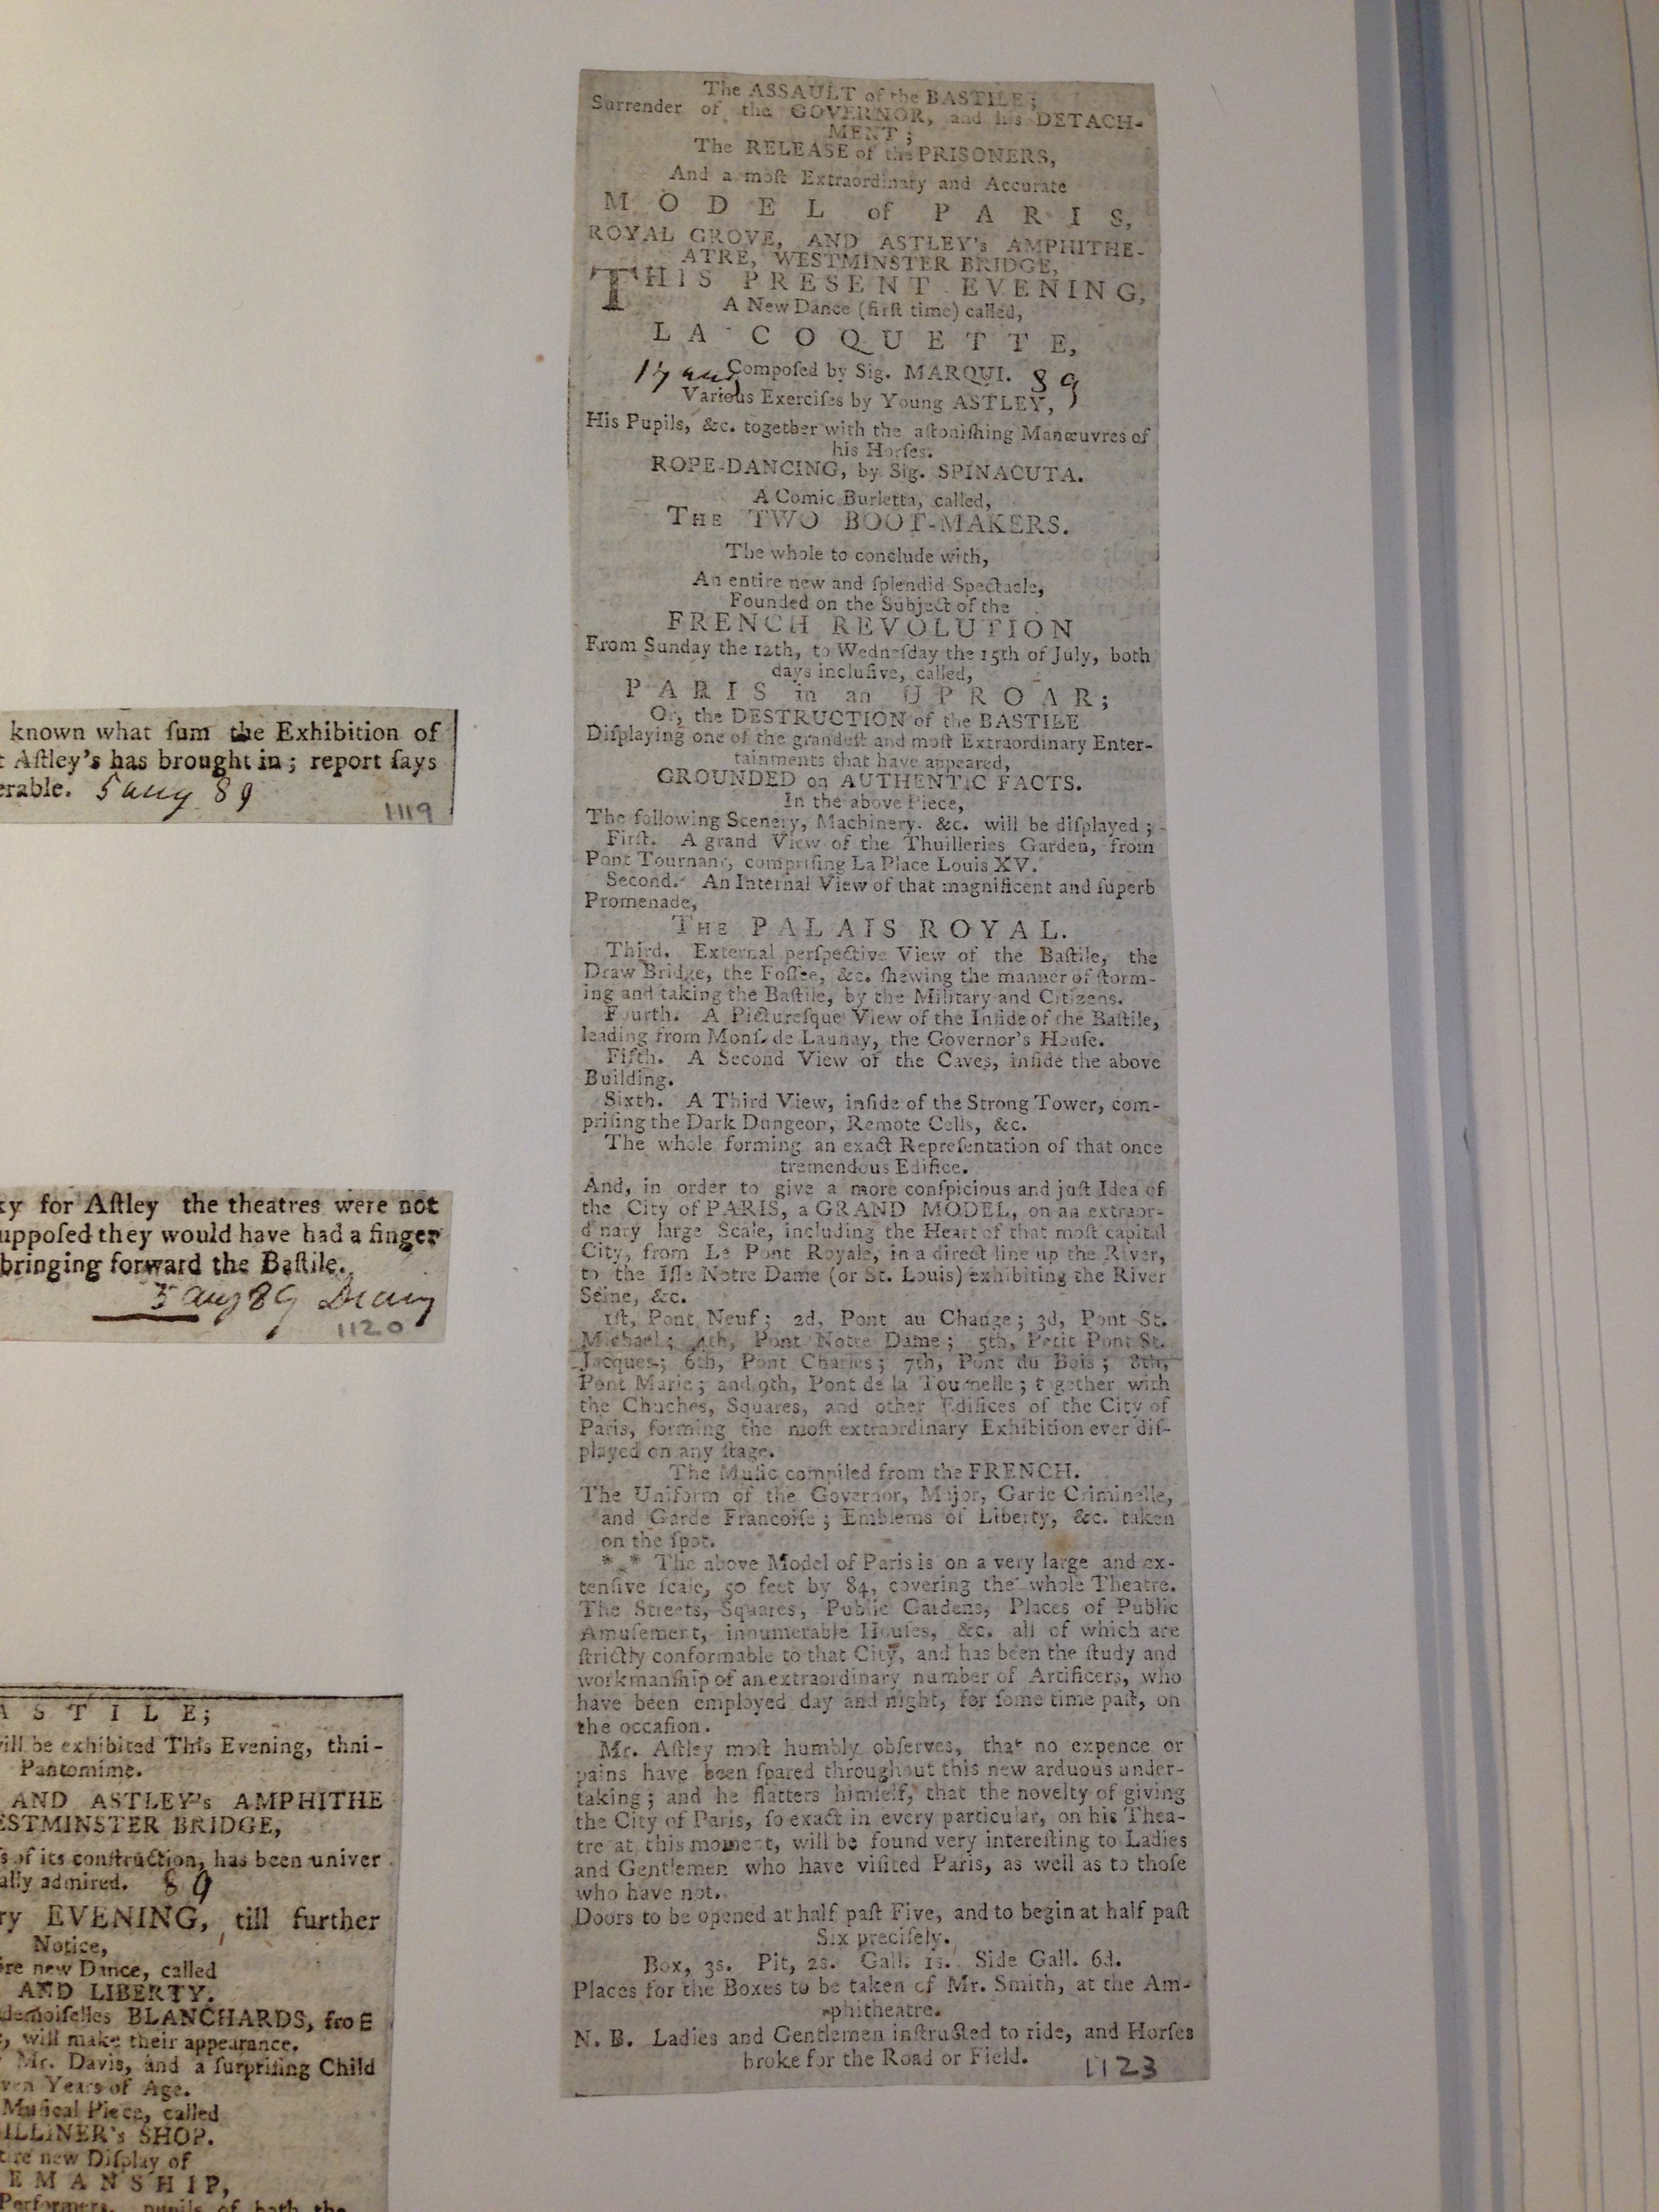 known what ſum the Exhibition of
Aſtley's has brought in; report ſays
erable. 5 aug 89
1119
for Aſtley the theatres were not
uppoſed they would have had a finger
bringing forward the Baſtile.
5 aug 89 Diary
1120
A S T I L E;
ill be exhibited This Evening, thni-
Pantomime.
AND ASTLEY's AMPHITHE
ESTMINSTER BRIDGE,
s of its conſtruction, has been univer
ally admired. 89
ry EVENING, till further
Notice,
ire new Dance, called
AND LIBERTY.
demoiſelles BLANCHARDS, fro E
, will make their appearance.
Mr. Davis, and a ſurpriſing Child
ven Years of Age.
Muſical Piece, called
ILLINER's SHOP.
tire new Diſplay of
E M A N S H I P,
Performers, pupils of both the
The ASSAULT of the BASTILE;
Surrender of the GOVERNOR, and his DETACH-
MENT;
The RELEASE of the PRISONERS,
And a moſt Extraordinary and Accurate
M O D E L of P A R I S,
ROYAL GROVE, AND ASTLEY's AMPHITHE-
ATRE, WESTMINSTER BRIDGE,
THIS PRESENT EVENING,
A New Dance (firſt time) called,
LA COQUETTE,
Compoſed by Sig. MARQUI.
17 aug 89
Various Exerciſes by Young ASTLEY,
His Pupils, &c. together with the aſtoniſhing Manœuvres of
his Horſes.
ROPE-DANCING, by Sig. SPINACUTA.
A Comic Burletta, called,
THE TWO BOOT-MAKERS.
The whole to conclude with,
An entire new and ſplendid Spectacle,
Founded on the Subject of the
FRENCH REVOLUTION
From Sunday the 12th, to Wedneſday the 15th of July, both
days incluſive, called,
PARIS in an UPROAR;
Or, the DESTRUCTION of the BASTILE
Diſplaying one of the grandeſt and moſt Extraordinary Enter-
tainments that have appeared,
GROUNDED on AUTHENTIC FACTS.
In the above Piece,
The following Scenery, Machinery. &c. will be diſplayed;
Firſt. A grand View of the Thuilleries Garden, from
Pont Tournant, compriſing La Place Louis XV.
Second. An Internal View of that magnificent and ſuperb
Promenade,
THE PALAIS ROYAL.
Third. External perſpective View of the Baſtile, the
Draw Bridge, the Foſſee, &c. ſhewing the manner of ſtorm-
ing and taking the Baſtile, by the Military and Citizens.
Fourth. A Pictureſque View of the Inſide of the Baſtile,
leading from Monſ. de Launay, the Governor's Houſe.
Fifth. A Second View of the Caves, inſide the above
Building.
Sixth. A Third View, inſide of the Strong Tower, com-
priſing the Dark Dungeon, Remote Cells, &c.
The whole forming an exact Repreſentation of that once
tremendous Edifice.
And, in order to give a more conſpicious and juſt Idea of
the City of PARIS, a GRAND MODEL, on an extraor-
dinary large Scale, including the Heart of that moſt capital
City, from Le Pont Royale, in a direct line up the River,
to the Iſle Notre Dame (or St. Louis) exhibiting the River
Seine, &c.
1ſt, Pont Neuf; 2d, Pont au Change; 3d, Pont St.
Michael; 4th, Pont Notre Dame; 5th, Petit Pont St.
Jacques; 6th, Pont Charles; 7th, Pont du Bois; 8th,
Pont Marie; and 9th, Pont de la Tournelle; together with
the Chuches, Squares, and other Edifices of the City of
Paris, forming the moſt extraordinary Exhibition ever diſ-
played on any ſtage.
The Muſic compiled from the FRENCH.
The Uniform of the Governor, Major, Garde Criminelle,
and Garde Francoiſe; Emblems of Liberty, &c. taken
on the ſpot.
*⁎* The above Model of Paris is on a very large and ex-
tenſive ſcale, 50 feet by 84, covering the whole Theatre.
The Streets, Squares, Public Gardens, Places of Public
Amuſement, innumerable Houſes, &c. all of which are
ſtrictly conformable to that City, and has been the ſtudy and
workmanſhip of an extraordinary number of Artificers, who
have been employed day and night, for ſome time paſt, on
the occaſion.
Mr. Aſtley moſt humbly obſerves, that no expence or
pains have been ſpared throughout this new arduous under-
taking; and he flatters himſelf, that the novelty of giving
the City of Paris, ſo exact in every particular, on his Thea-
tre at this moment, will be found very intereſting to Ladies
and Gentlemen who have viſited Paris, as well as to thoſe
who have not.
Doors to be opened at half paſt Five, and to begin at half paſt
Six preciſely.
Box, 3s. Pit, 2s. Gall. 1s. Side Gall. 6d.
Places for the Boxes to be taken of Mr. Smith, at the Am-
phitheatre.
N. B. Ladies and Gentlemen inſtructed to ride, and Horſes
broke for the Road or Field.
1123